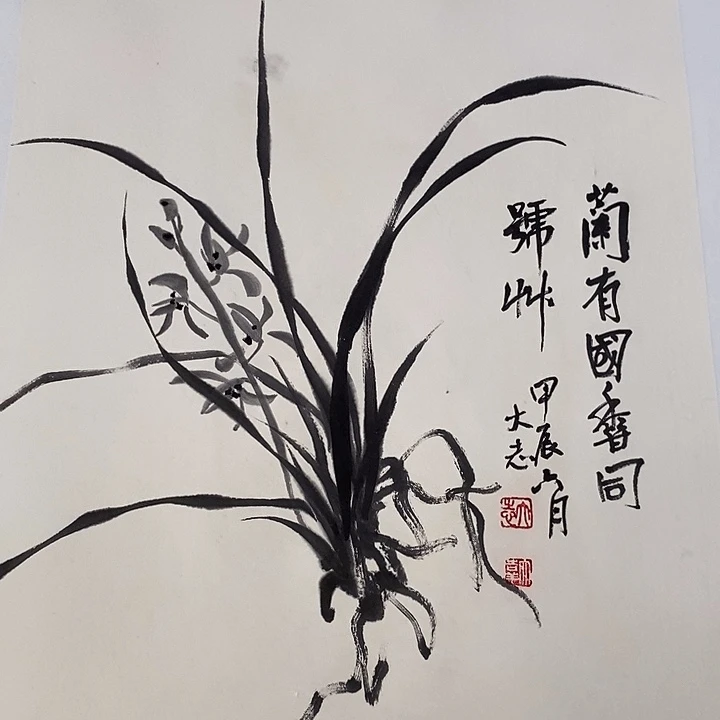 蘭有國香同
號艸
甲辰六月
大志